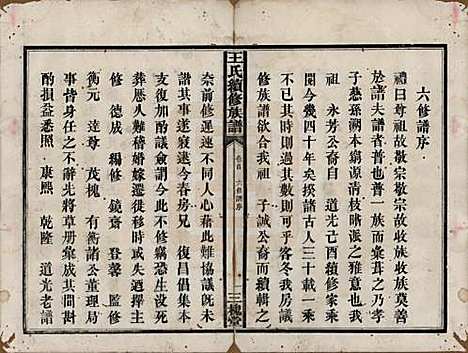 六修譜序
禮曰尊祖故敬宗敬宗故收族收族莫善
於譜夫譜者畢一族而彙葺之乃孝
子慈孫溯本窮源清枝晰派之雅意也我
祖 永芳公裔自 道光二十年續修家乘
閱今幾四十年矣揆諸古人三十載一乘
之期不已過其數則可乎客冬我房長
修族譜欲合我祖 子誠公裔而續輯之
王氏續修族譜
卷首 六修譜序
三
三槐堂
奈前修運際 也此雖協議既未
其事遂寢逮今春房兄 復昌倡集
支復加酌議僉謂今此不修竊恐生沒死
葬歷久難稽婚嫁遷徙移時或失遴擇主
修 德成 楊修 鏡齋 登舉 監修
衡元 達尊 茂槐 有衡諸公董理局
務 將草册彙成其間斟
酌損益悉照 康熙 乾隆 道光老譜